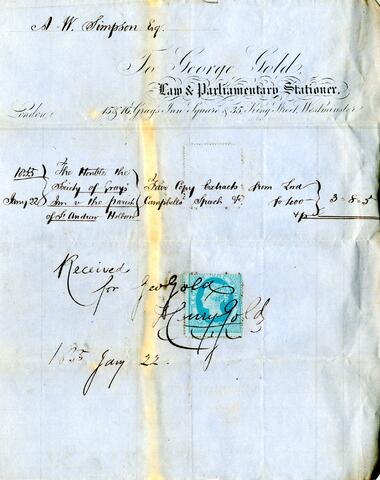 A. W. Simpson Esq.
To George Gold,
Law & Parliamentary Stationer,
London 15 & 16 Grays Inn Square & 35, King Street, Westminster
1855 The Honble the
Society of Grays Fair Copy Extracts from Lord
Jany 22 Inn v the parish Campbells Speech &c fo 1000 3-8-5
of St Andrew Holborn
Received
for Geo Gold
Henry Gold
1855 Jany 22